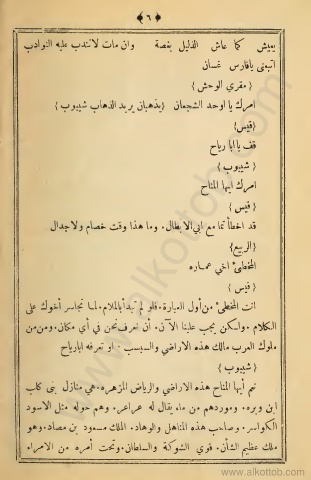 ﴿ ٦ ﴾
يعيش كما عاش الذليل بغصة وان مات لا تندب عليه النوادب
اتبعني يافارس غسان
{ مقري الوحش }
امرك يا اوحد الشجعان {يذهبان يريد الذهاب شيبوب }
{قيس}
قف يا ابا رياح
{ شيبوب }
امرك ايها المتاح
{ قيس }
قد اخطأتما مع ابي الابطال. وما هذا وقت خصام ولاجدال
{الربيع}
المخطئ اخي عماره
{ قيس }
انت المخطئ من أول العبارة. فلو لم تبدأ بالملام. لما تجاسر أخوك على
الكلام. ولكن يجب علينا الآن. أن نعرف نحن في أي مكان. ومن من
ملوك العرب مالك هذه الاراضي والسبسب. او تعرفه ابارياح
{ شيبوب }
نعم أيها المتاح هذه الاراضي والرياض المزهره. هي منازل بني كلب
ابن وبره. وموردهم من ماء يقال له عراعر. وهم حوله مثل الاسود
الكواسر. وصاحب هذه المناهل والوهاد. الملك مسعود بن مصاد. وهو
ملك عظيم الشأن. قوي الشوكة والسلطان. وتحت أمره من الامراء.
www.alkottob.com
www.alkottob.com